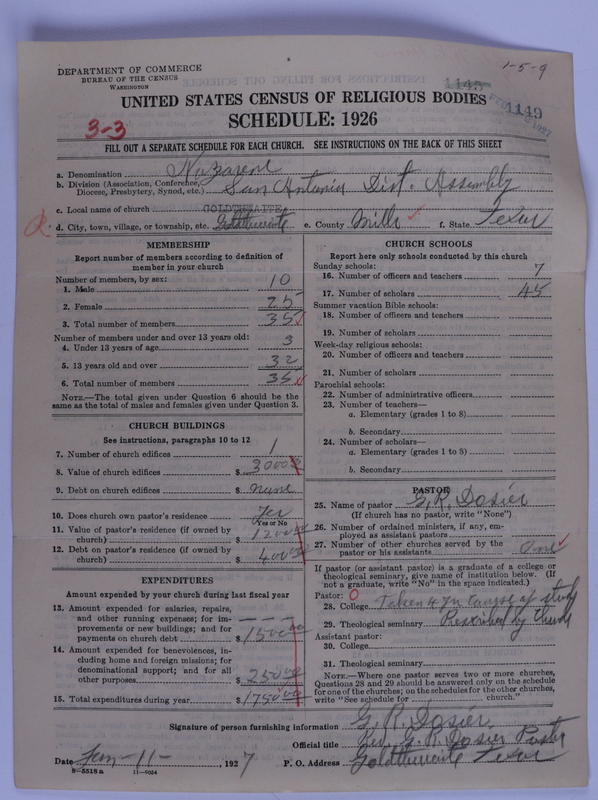 DEPARTMENT OF COMMERCE
BUREAU OF THE CENSUS
WASHINGTON
1-5-9
1149
UNITED STATES CENSUS OF RELIGIOUS BODIES
SCHEDULE: 1926
3-3
FILL OUT A SEPARATE SCHEDULE FOR EACH CHURCH. SEE INSTRUCTIONS ON THE BACK OF THIS SHEET
a. Denomination Nazarene
b. Division (Association, Conference, Diocese, Presbytery, Synod, etc.) San Antonio Dist. Assembly
c. Local name of church GOLDTHWAITE
d. City, town, village, or township, etc. Goldthwaite e. County Mills f. State Texas
MEMBERSHIP
Report number of members according to definition of
member in your church
Number of members, by sex:
1. Male 10
2. Female 25
3. Total number of members 35
Number of members under and over 13 years old:
4. Under 13 years of age 3
5. 13 years old and over 32
6. Total number of members 35
NOTE.—The total given under Question 6 should be the
same as the total of males and females given under Question 3.
CHURCH BUILDINGS
See instructions, paragraphs 10 to 12
7. Number of church edifices 1
8. Value of church edifices $ 3000
9. Debt on church edifices $ none
10. Does church own pastor's residence Yes
Yes or No
11. Value of pastor's residence (if owned by
church) $ 1200
12. Debt on pastor's residence (if owned by
church) $ 400
EXPENDITURES
Amount expended by your church during last fiscal year
13. Amount expended for salaries, repairs,
and other running expenses; for im-
provements or new buildings; and for
payments on church debt $ 1500
14. Amount expended for benevolences, in-
cluding home and foreign missions; for
denominational support; and for all
other purposes $ 250 00
15. Total expenditures during year $ 1750 00
CHURCH SCHOOLS
Report here only schools conducted by this church
Sunday schools:
16. Number of officers and teachers 7
17. Number of scholars 45
Summer vacation Bible schools:
18. Number of officers and teachers
19. Number of scholars
Week-day religious schools:
20. Number of officers and teachers
21. Number of scholars
Parochial schools:
22. Number of administrative officers
23. Number of teachers—
a. Elementary (grades 1 to 8)
b. Secondary
24. Number of scholars—
a. Elementary (grades 1 to 8)
b. Secondary
PASTOR
25. Name of pastor G. R. Dosier
(If church has no pastor, write "None")
26. Number of ordained ministers, if any, em-
ployed as assistant pastors
27. Number of other churches served by the
pastor or his assistants One
If pastor (or assistant pastor) is a graduate of a college or
theological seminary, give name of institution below. (If
not a graduate, write "No" in the space indicated.)
Pastor: O
28. College Taken 4 yr Course of study
29. Theological seminary Prescribed by Church
Assistant pastor:
30. College
31. Theological seminary
NOTE.—Where one pastor serves two or more churches,
Questions 28 and 29 should be answered only on the schedule
for one of the churches; on the schedules for the other churches,
write "See schedule for church."
Signature of person furnishing information G. R. Dosier
Official title Rev. G. R. Dosier Pastor
Date Jan-11-, 1927 P. O. Address Goldthwaite Texas
8-5518 a 11-9054